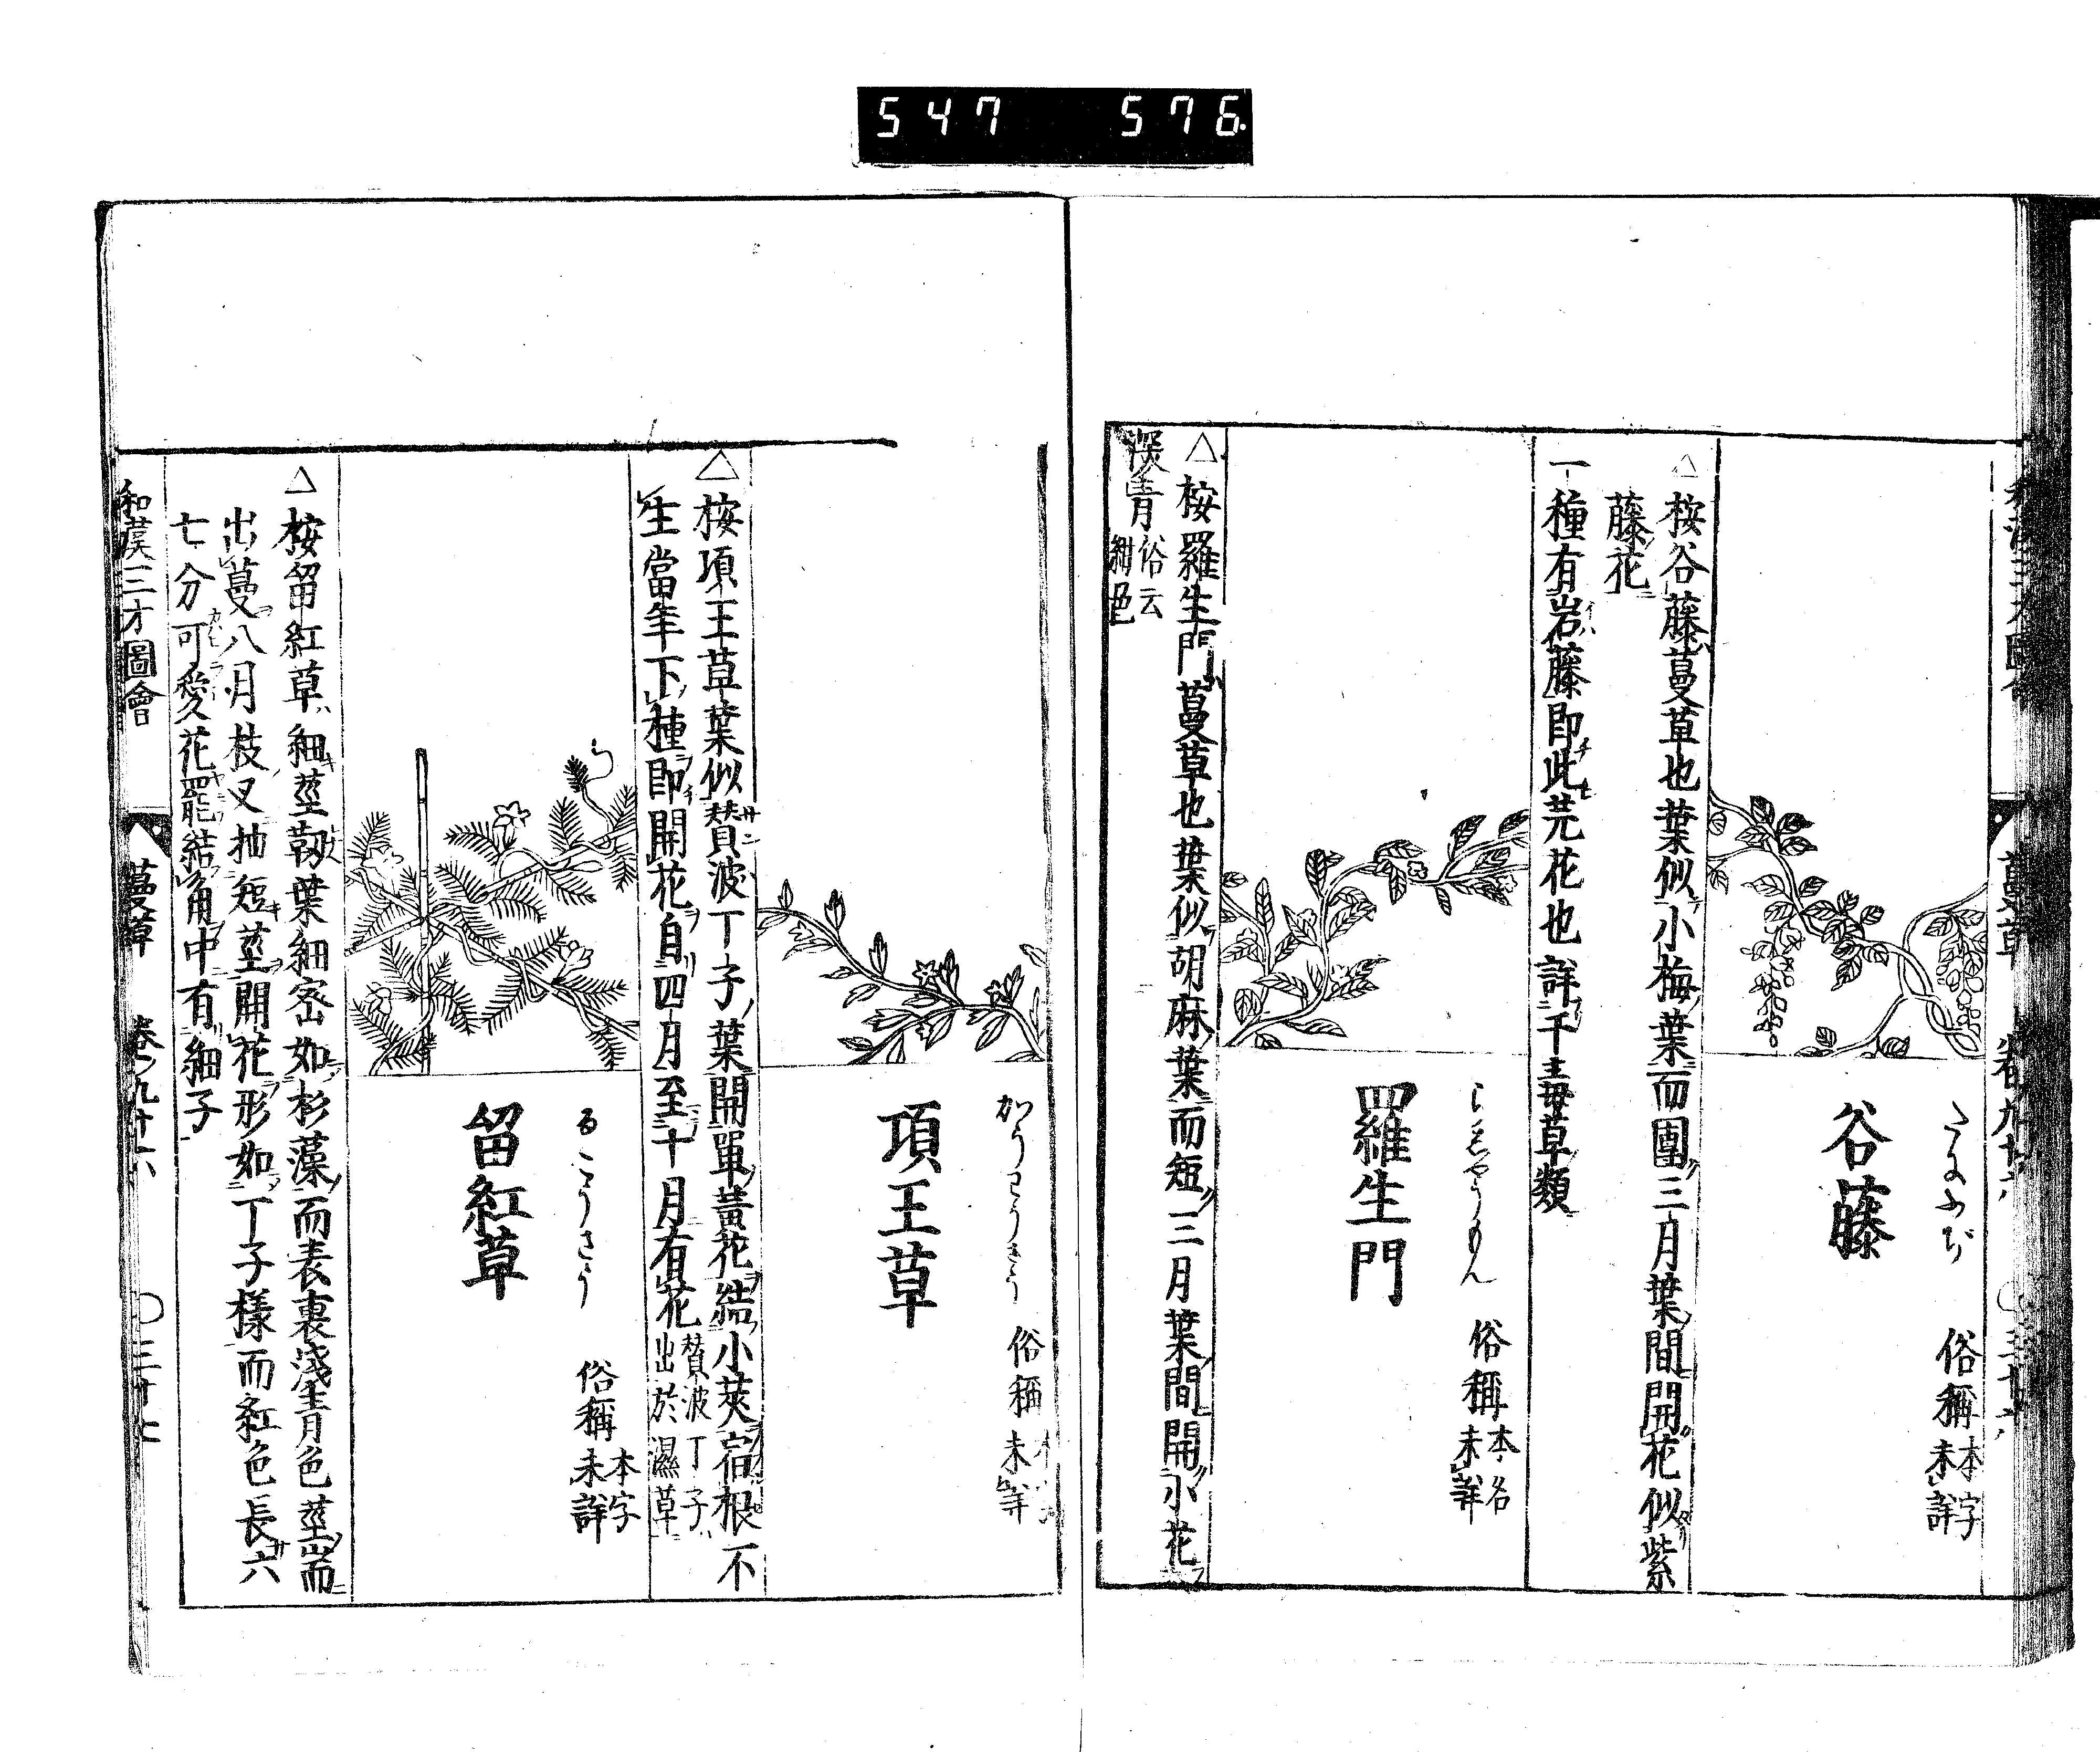 547 576
谷藤
たにふぢ
俗稱 本字未詳
△桉谷藤蔓草也葉似小梅葉而團三月葉間開花似紫
藤花
一種有岩藤即此芫花也詳于毒草類
羅生門
らしやうもん
俗稱 本名未詳
△桉羅生門蔓草也葉似胡麻葉而短三月葉間開小花
深青 俗云紺色
項王草
かうわうさう
俗稱 未詳
△桉項王草葉似賛波丁子葉開單黃花結小莢宿根不
生當年下種即開花自四月至十月有花 賛波丁子出於濕草
留紅草
るこうさう
俗稱 本字未詳
△桉留紅草細莖靱葉細宻如杉藻而表裏淺青色莖耑
出蔓八月枝叉抽短莖開花形如丁子樣而紅色長六
七分可愛花罷結角中有細子
和漢三才圖會 蔓草 卷ノ九十六 〇三十七